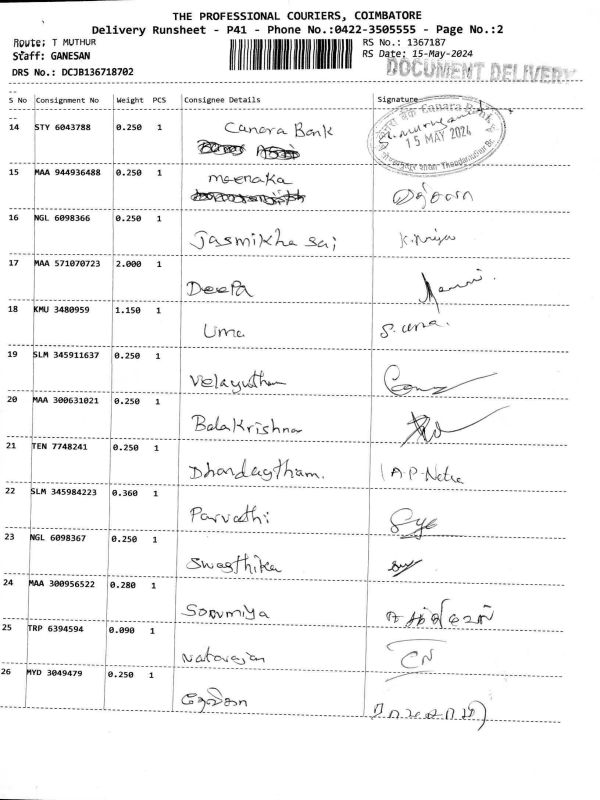 THE PROFESSIONAL COURIERS, COIMBATORE
Delivery Runsheet - P41 - Phone No.:0422-3505555 - Page No.:2
Route: T MUTHUR RS No.: 1367187
Staff: GANESAN RS Date: 15-May-2024
DRS No.: DCJB136718702 DOCUMENT DELIVERY
S No Consignment No Weight PCS Consignee Details Signature
14 STY 6043788 0.250 1 Canara Bank
Canara Bank
15 MAY 2024
15 MAA 944936488 0.250 1 meenaka
16 NGL 6098366 0.250 1 Jasmikha sai K.Priya
17 MAA 571070723 2.000 1 Deepa
18 KMU 3480959 1.150 1 Uma S. uma.
19 SLM 345911637 0.250 1 Velayutham
20 MAA 300631021 0.250 1 Balakrishnan
21 TEN 7748241 0.250 1 Dhandagtham. A.P-Netra
22 SLM 345984223 0.360 1 Parvathi
23 NGL 6098367 0.250 1 Swasthika
24 MAA 300956522 0.280 1 Sowmiya
25 TRP 6394594 0.090 1 Natarajan CN
26 MYD 3049479 0.250 1